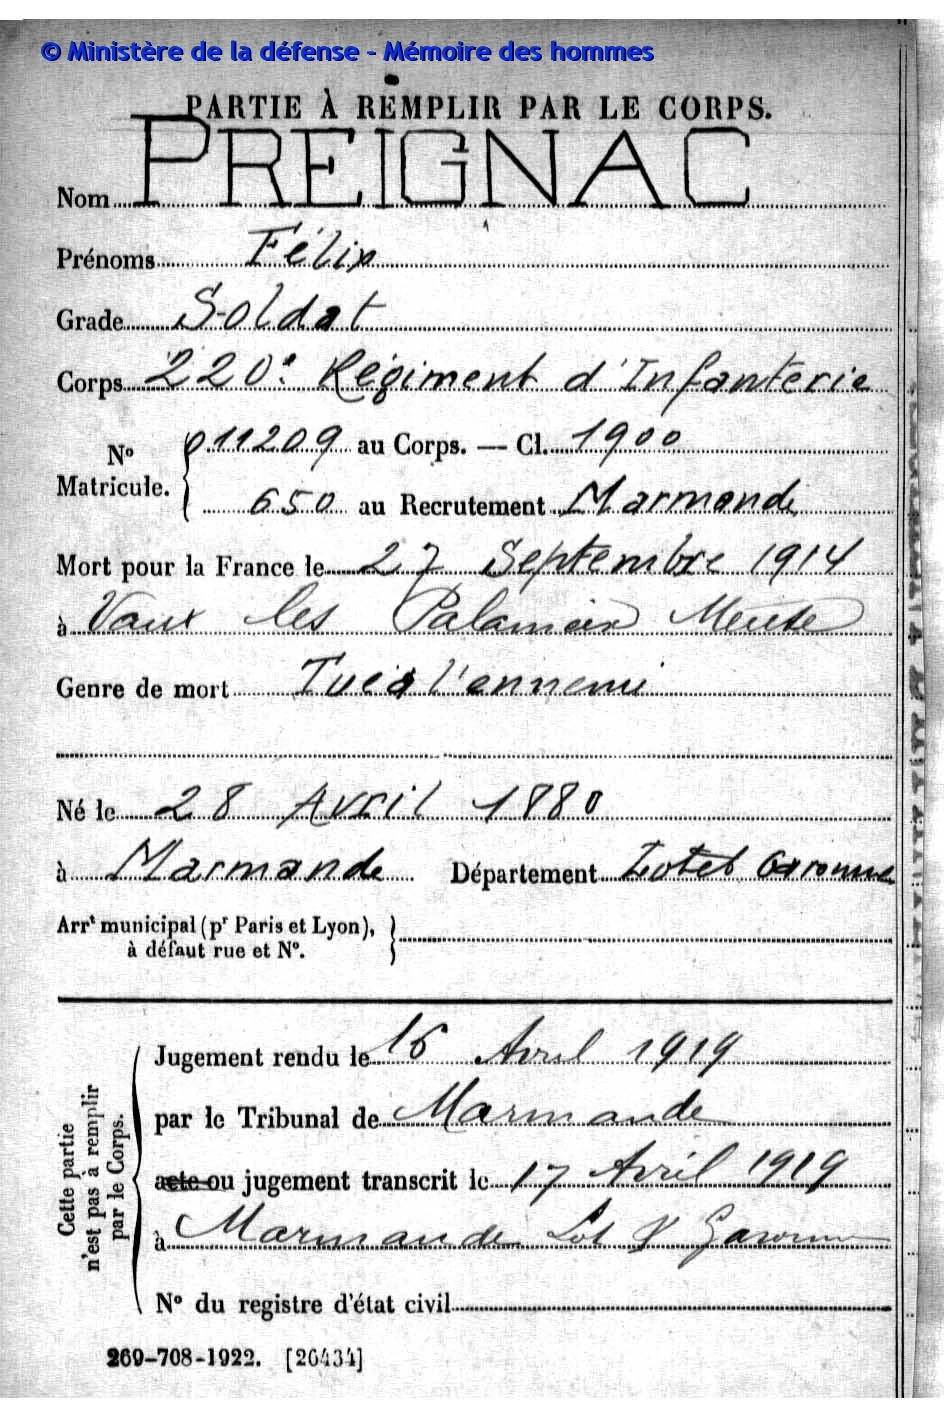 © Ministère de la défense - Mémoire des hommes
PARTIE À REMPLIR PAR LE CORPS.
Nom PREIGNAC
Prénoms Félix
Grade Soldat
Corps 220e Régiment d'Infanterie
No Matricule. { 011209 au Corps. — Cl. 1900
650 au Recrutement Marmande
Mort pour la France le 27 Septembre 1914
à Vaux les Palameix Meuse
Genre de mort Tué à l'ennemi
Né le 28 Avril 1880
à Marmande Département Lot et Garonne
Arrt municipal (pr Paris et Lyon), }
à défaut rue et No.
Cette partie
n'est pas à remplir
par le Corps.
Jugement rendu le 16 Avril 1919
par le Tribunal de Marmande
acte ou jugement transcrit le 17 Avril 1919
à Marmande Lot & Garonne
No du registre d'état civil
269-708-1922. [26434]